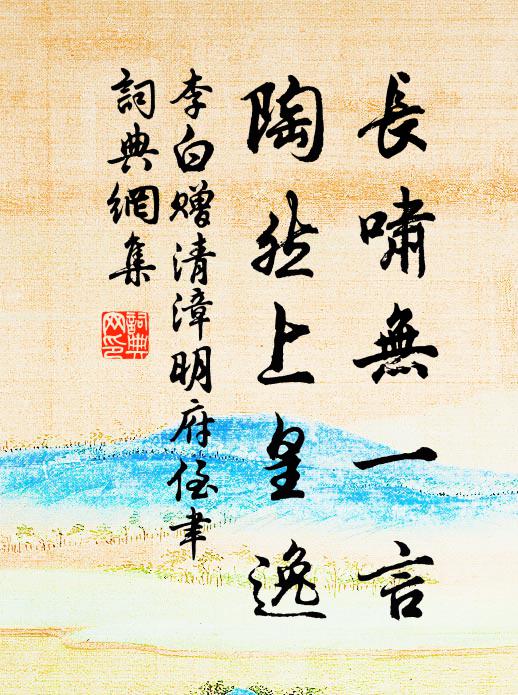 長嘯無一言
陶然上皇逸
李白赠清漳明府侄聿
詞典網集
詞典網印